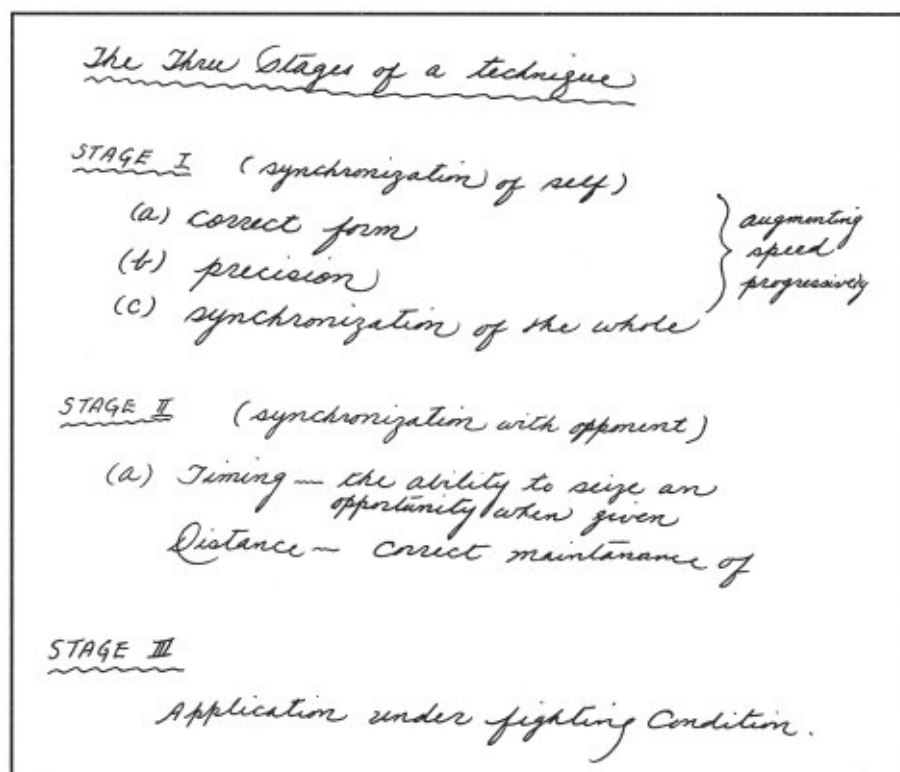 The Three Stages of a technique
STAGE I (synchronization of self)
(a) correct form
(b) precision
(c) synchronization of the whole
augmenting
speed
progressively
STAGE II (synchronization with opponent)
(a) Timing — the ability to seize an
opportunity when given
Distance — correct maintanance of
STAGE III
Application under fighting Condition.